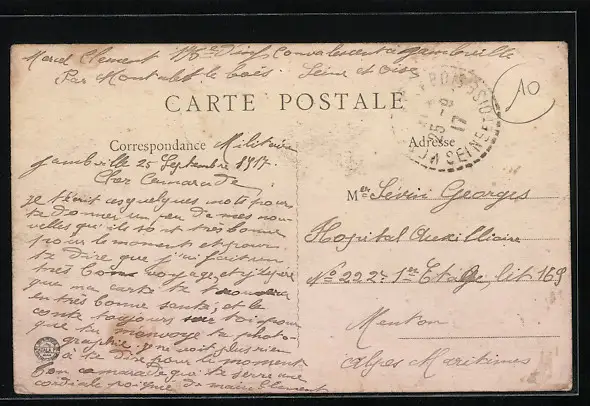 Marcel Clement 176e Dinf Convalescent a Jambville
Par Montalet le bois Seine et Oise
CARTE POSTALE
10
Correspondance Militaire
Adresse
Jambville 25 Septembre 1917.
Cher Camarade
je t'écrit ces quelques mots pour
te donner un peu de mes nou
velles qui ils sont très bonne
pour le moment et pour
te dire que j'ai fait un
très bons voyage, et j'espère
que ma carte te trouvera
en très bonne santé, et le
conte toujours sur toi pour
que tu menvoye ta photo-
graphie, je ne voit plus rien
a te dire pour le moment
bon camarade qui te serre une
cordiale poignée de main Clement
Mer Sévin Georges
Hopital Auxilliaire
No 222. 1er Etage, lit 169
Menton
Alpes Maritimes
25 - 9
17
SEINE-ET-OISE